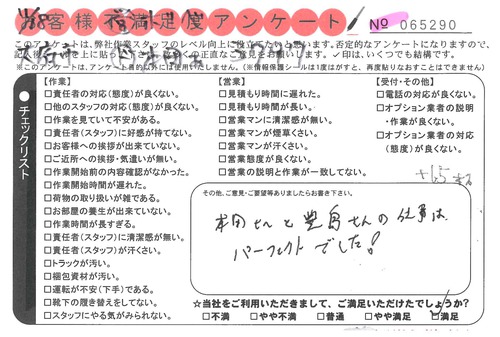 お客様不満足度アンケート
No 065290
このアンケートは、弊社作業スタッフのレベル向上に役立てたいと思います。否定的なアンケートになりますので、
✓印は、いくつでも結構です。
(※このアンケートは、アンケート目的以外には使用いたしません。)(※情報保護シールは1度はがすと、再度貼りなおすことはできません)
チェックリスト
【作業】
□責任者の対応(態度)が良くない。
□他のスタッフの対応(態度)が良くない。
□作業を見ていて不安がある。
□責任者(スタッフ)に好感が持てない。
□お客様への挨拶が出来ていない。
□ご近所への挨拶・気遣いが無い。
□作業開始前の内容確認がなかった。
□作業開始時間が遅れた。
□荷物の取り扱いが雑である。
□お部屋の養生が出来ていない。
□作業時間が長すぎる。
□責任者(スタッフ)に清潔感が無い。
□責任者(スタッフ)が汗くさい。
□トラックが汚い。
□梱包資材が汚い。
□運転が不安(下手)である。
□靴下の履き替えをしてない。
□スタッフにやる気がみられない。
【営業】
□見積もり時間に遅れた。
□見積もり時間が長い。
□営業マンに清潔感が無い。
□営業マンが煙草くさい。
□営業マンが汗くさい。
□営業態度が良くない。
□営業の説明と作業が一致してない。
【受付・その他】
□電話の対応が良くない。
□オプション業者の説明
・作業が良くない。
□オプション業者の対応
(態度)が良くない。
その他、ご意見・ご要望等ありましたらお書き下さい。
本田さんと豊島さんの仕事は
パーフェクトでした!
☆当社をご利用いただきまして、ご満足いただけたでしょうか?
□不満 □やや不満 □普通 □やや満足 □満足